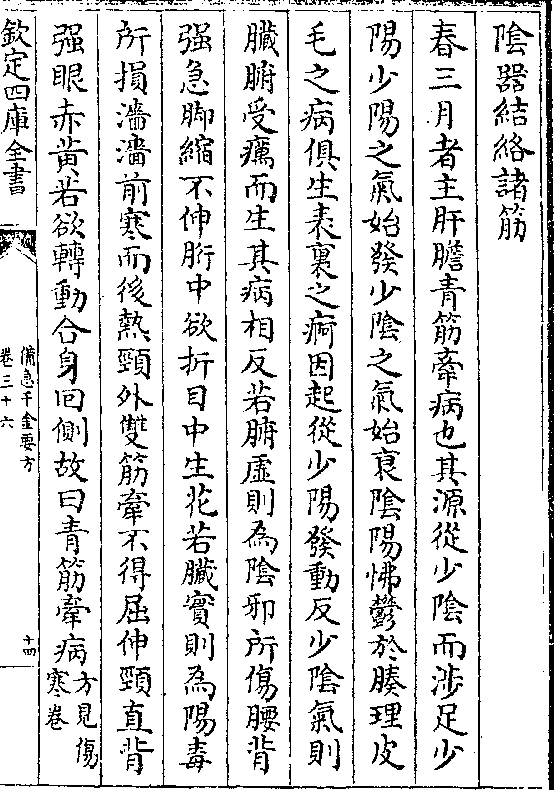 陰器結絡諸筋
春三月者主肝膽青筋牽病也其源從少陰而涉足少
陽少陽之氣始發少陰之氣始衰陰陽怫鬱於腠理皮
毛之病俱生表裏之疴因起從少陽發動反少陰氣則
臟腑受癘而生其病相反若腑虛則為陰邪所傷腰背
强急脚縮不伸胻中欲折目中生花若臟實則為陽毒
所損濇濇前寒而後熱頸外雙筋牽不得屈伸頸直背
强眼赤黃若欲轉動合身回側故曰青筋牽病方見傷寒卷
欽定四庫全書
備急千金要方
卷三十六
十四